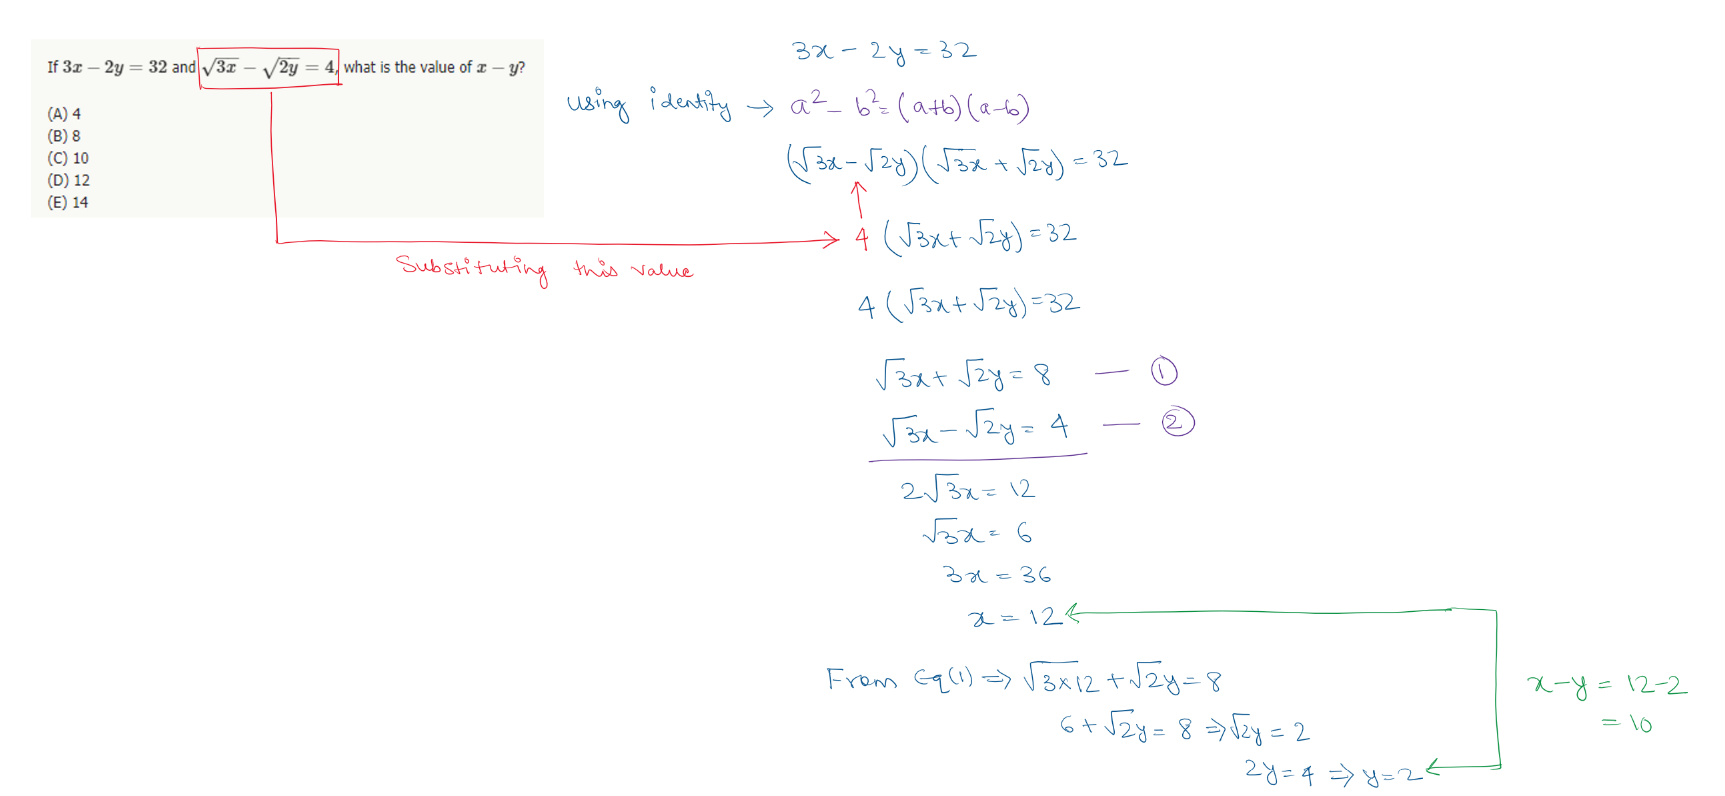 If 3x − 2y = 32 and √3x − √2y = 4, what is the value of x − y?
(A) 4
(B) 8
(C) 10
(D) 12
(E) 14
3x - 2y = 32
using identity → a² - b² = (a+b)(a-b)
(√3x - √2y)(√3x + √2y) = 32
4 (√3x + √2y) = 32
Substituting this value
4 (√3x + √2y) = 32
√3x + √2y = 8 — ①
√3x - √2y = 4 — ②
2√3x = 12
√3x = 6
3x = 36
x = 12
From Eq(1) ⇒ √3×12 + √2y = 8
6 + √2y = 8 ⇒ √2y = 2
2y = 4 ⇒ y = 2
x - y = 12 - 2
= 10